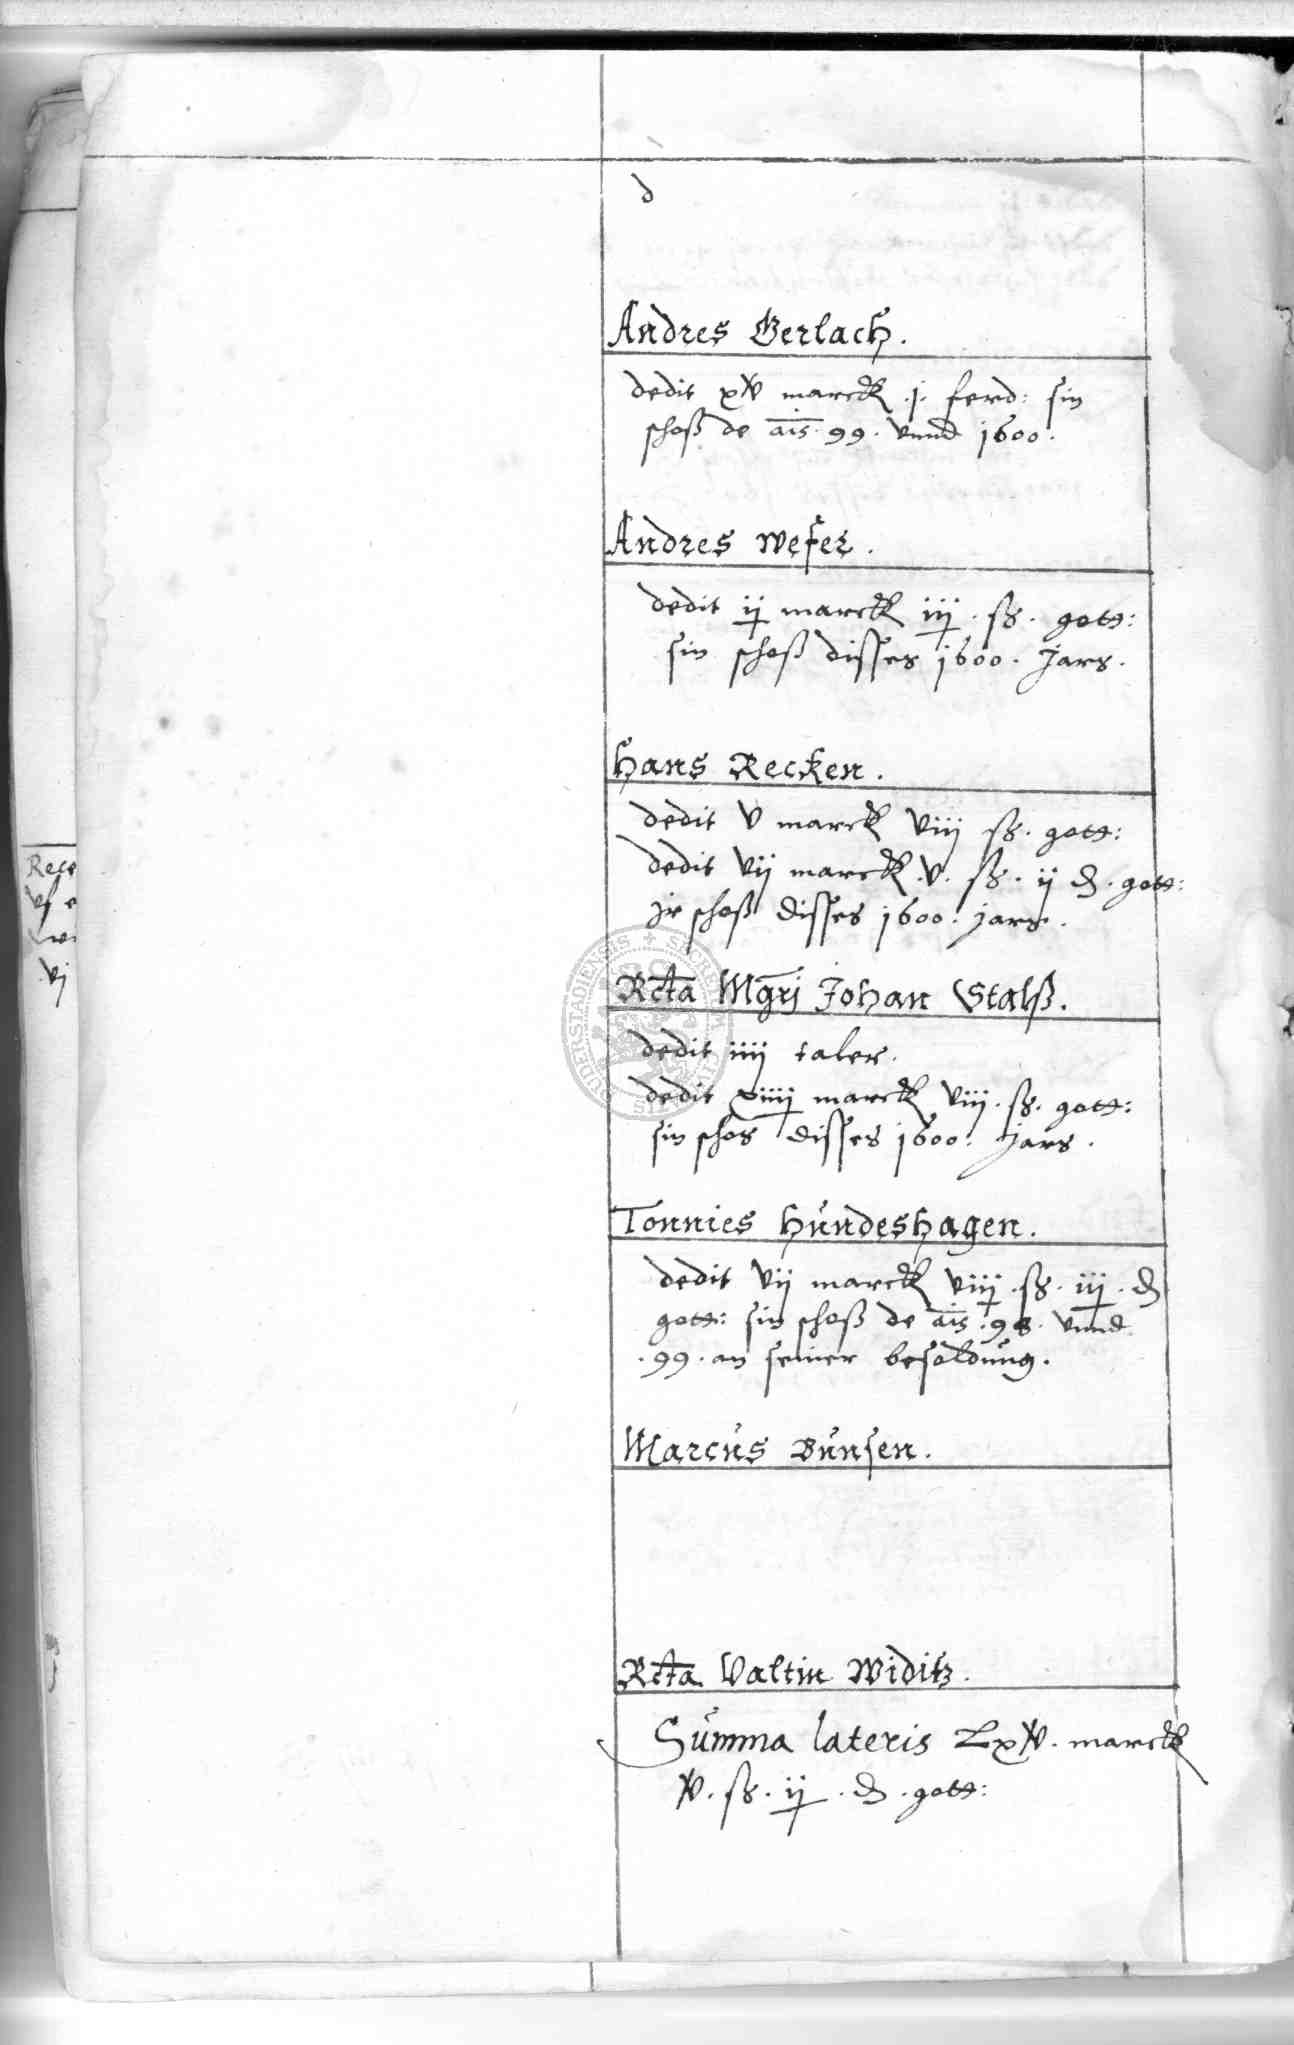 d
Andres Gerlach.
dedit xv marck .j. ferd: sin
schoß de ais. 99. vnnd 1600.
Andres Wefer.
dedit ij marck iij. ß. gott:
sin schoß disses 1600. Jars.
Hans Recken.
dedit v marck viij ß. gott:
dedit vij marck .v. ß. ij d. gott:
jr schoß disses 1600. jars.
Rcta Mgrj Johan Stalß.
dedit iiij taler.
dedit xiiij marck viij. ß. gott:
sin schos disses 1600. Jars.
Tonnies Hundeshagen.
dedit vij marck viij. ß. iij. d
gott: sin schoß de ais. 98. vnnd
.99. an seiner besoldung.
Marcus Bunsen.
Rcta Valtin Widitz.
Summa lateris Lxv. marck
v. ß. ij. d. gott:
Rece
vj
DUDERSTADIENSIS + SECRETUM CIVITATIS